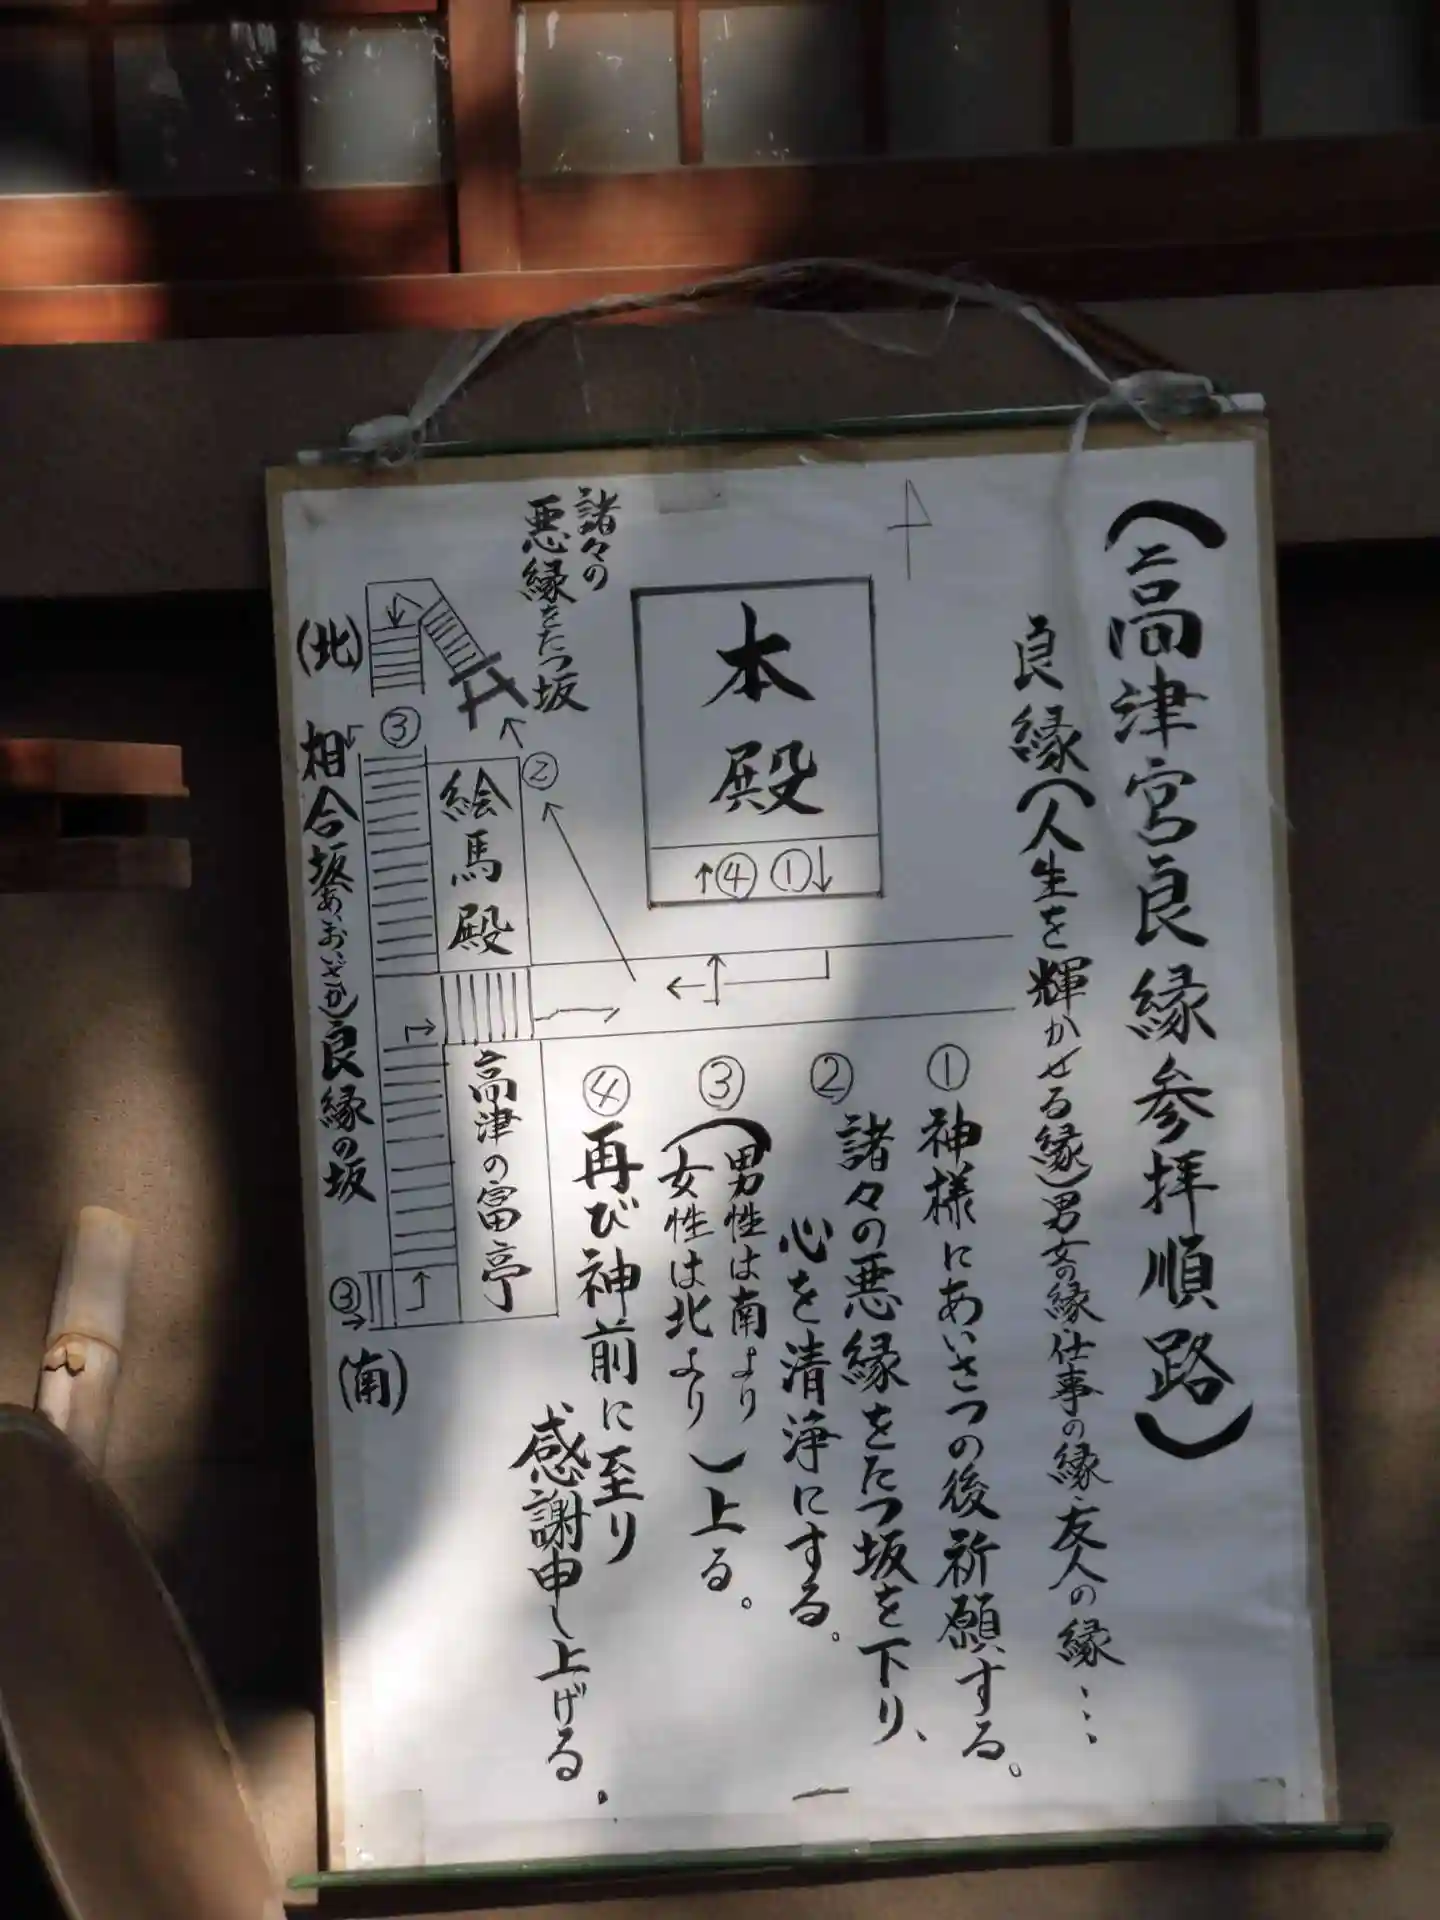 (高津宮良縁参拝順路)
良縁(人生を輝かせる縁)男女の縁・仕事の縁・友人の縁・・・・
① 神様にあいさつの後祈願する。
② 諸々の悪縁をたつ坂を下り、
心を清浄にする。
③ (男性は南より
女性は北より)上る。
④ 再び神前に至り
感謝申し上げる。
本殿
④ ①
諸々の
悪縁をたつ坂
②
絵馬殿
高津の富亭
③
(北)
相合坂(あいおいざか)良縁の坂
③
(南)